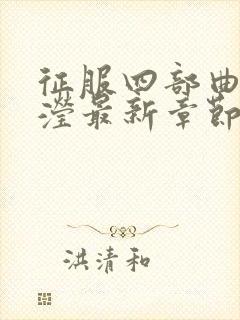 征服四部曲
瀅最新章節
洪清和